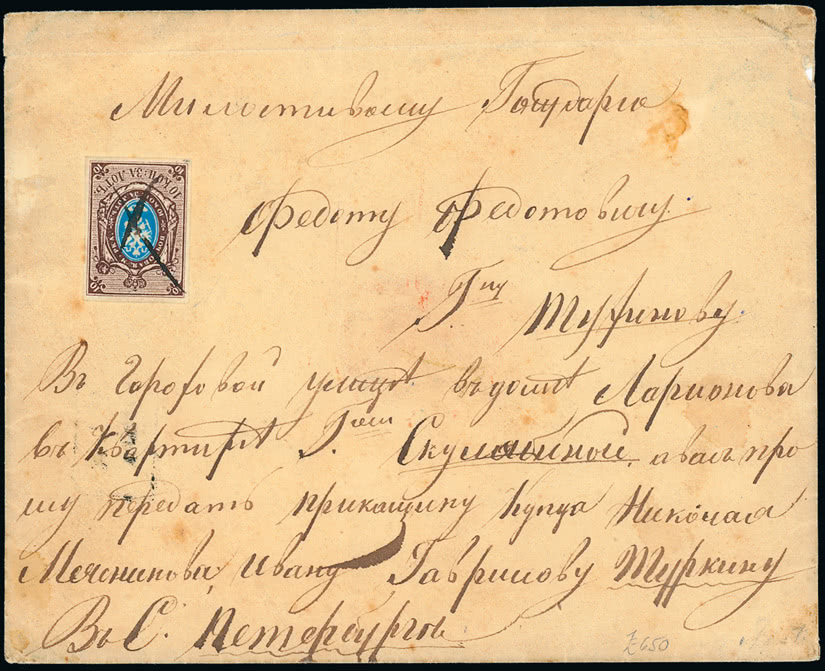 Милостивому Государю
Федоту Федотовичу
Гну
Въ Гороховой улицѣ въ домѣ Ларионова
въ квартирѣ Гжи а васъ про
шу передать прикащику купца Николая
Мясникова, Ивану Гаврилову Туркину
Въ С. Петербургѣ
10 КОП. ЗА ЛОТЪ.
£650